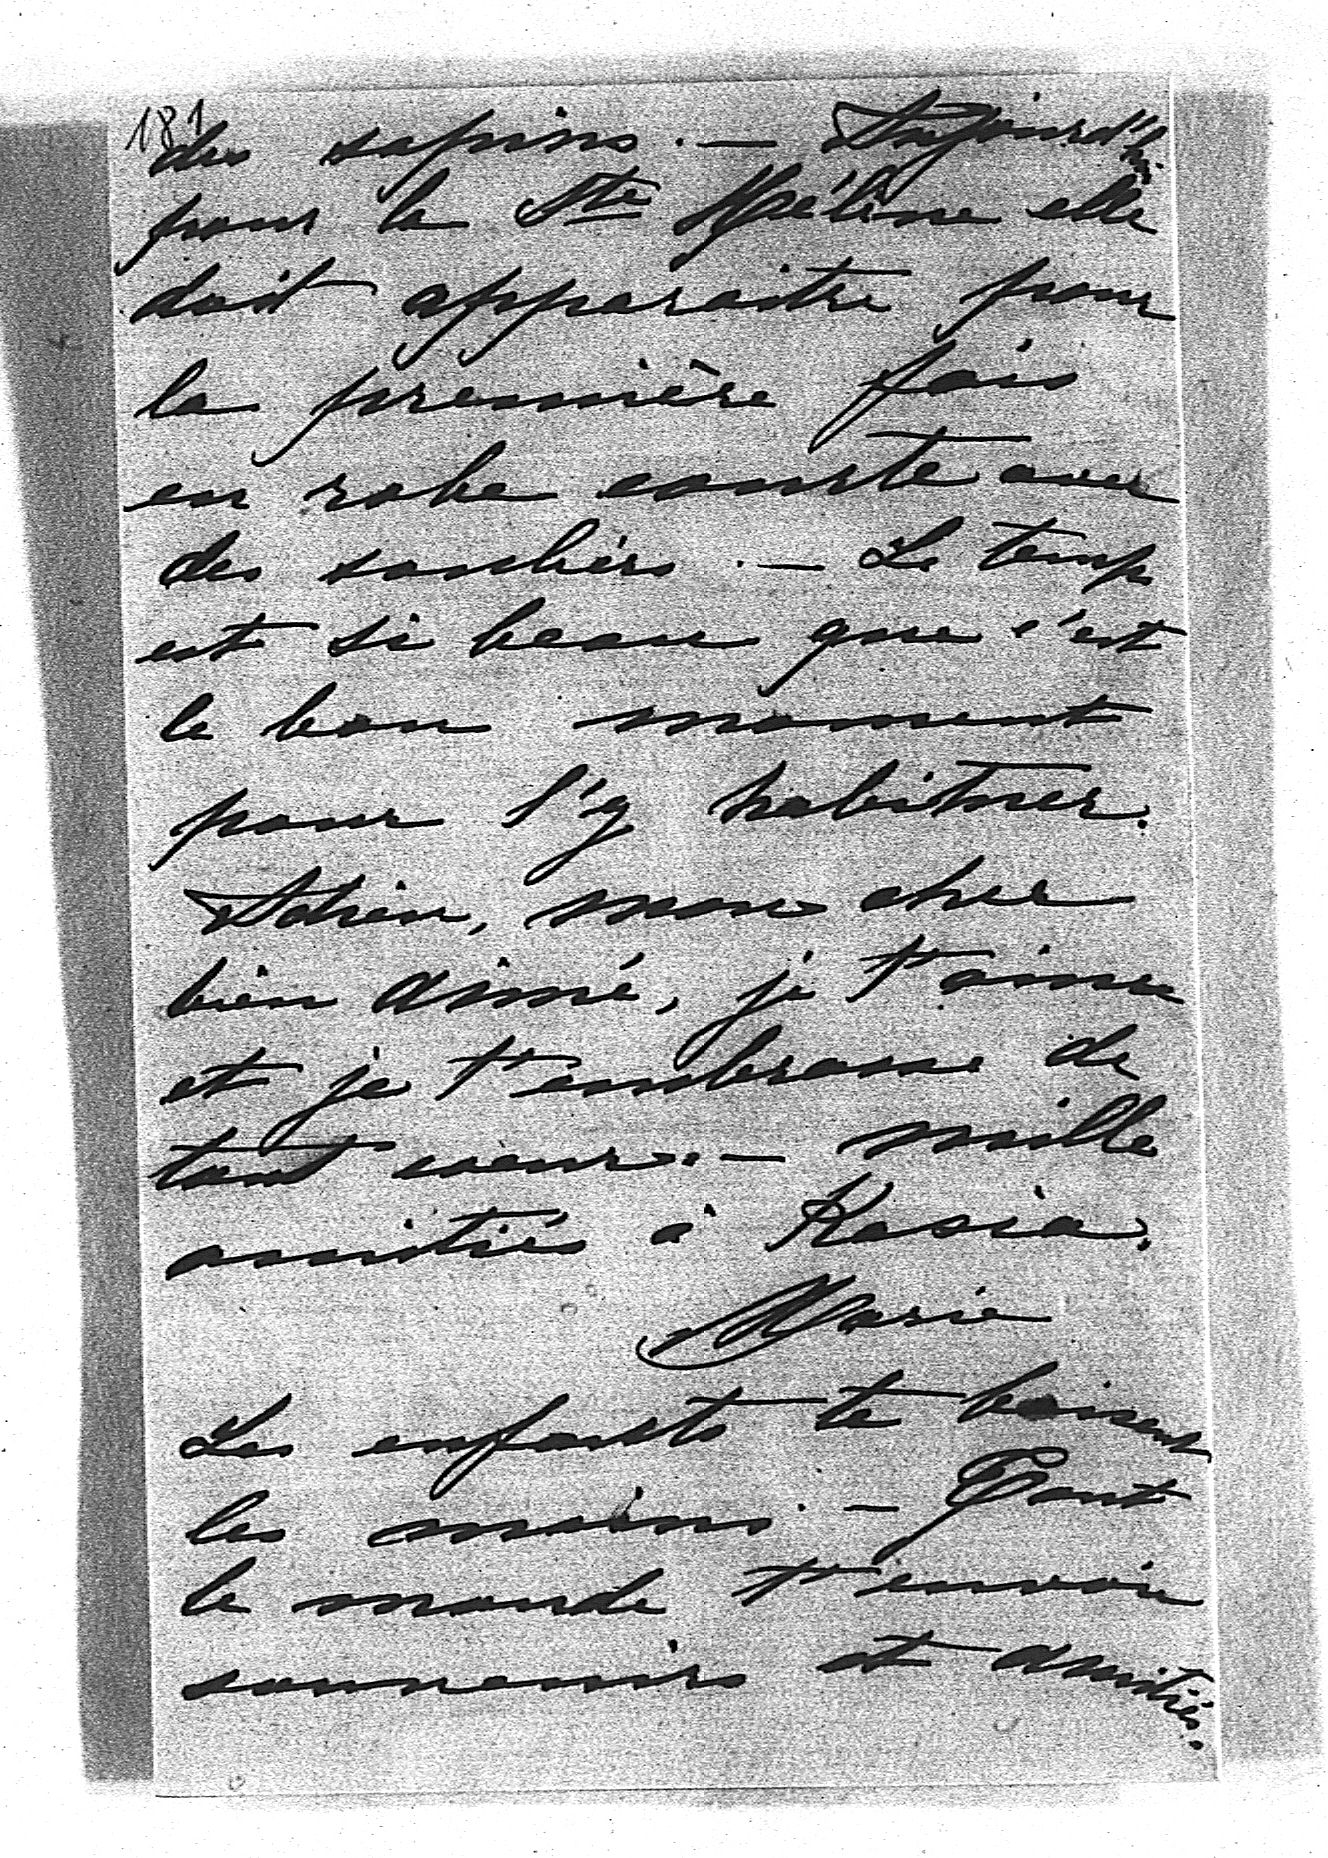 181
des sapins. — Aujourd'hui
pour la Ste Hélène elle
doit apparaître pour
la première fois
en robe courte avec
des souliers. — Le temps
est si beau que c'est
le bon moment
pour s'y habituer.
Adrien, mon cher
bien aimé, je t'aime
et je t'embrasse de
tout coeur. — mille
amitiés à Kasia.
Marie
Les enfants te baisent
les mains. — Tout
le monde t'envoie
souvenirs et amitiés.